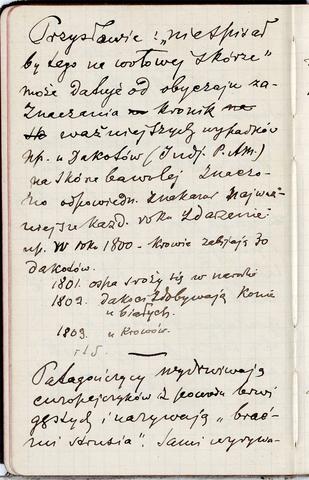 Przysłowie: „nie spisał
by tego na wołowej skórze"
może datuje od obyczaju za-
znaczania kronik
ważniejszych wypadków
np. u Dakotów (Indj. P. Am.)
na skórze bawolej znaczo-
no odpowiedn. znakami najważ-
niejsze każd. roku zdarzenie
np. W roku 1800 - Krowie zabijają 30
dakotów.
1801. ospa sroży się w narodzie
1802. dakoci zdobywają konie
u białych.
1803. u Krowów.
itd.
Patagończycy wyśmiewają
europejczyków z powodu brwi
gęstych i nazywają „brać-
mi strusia". Sami wyrywa-